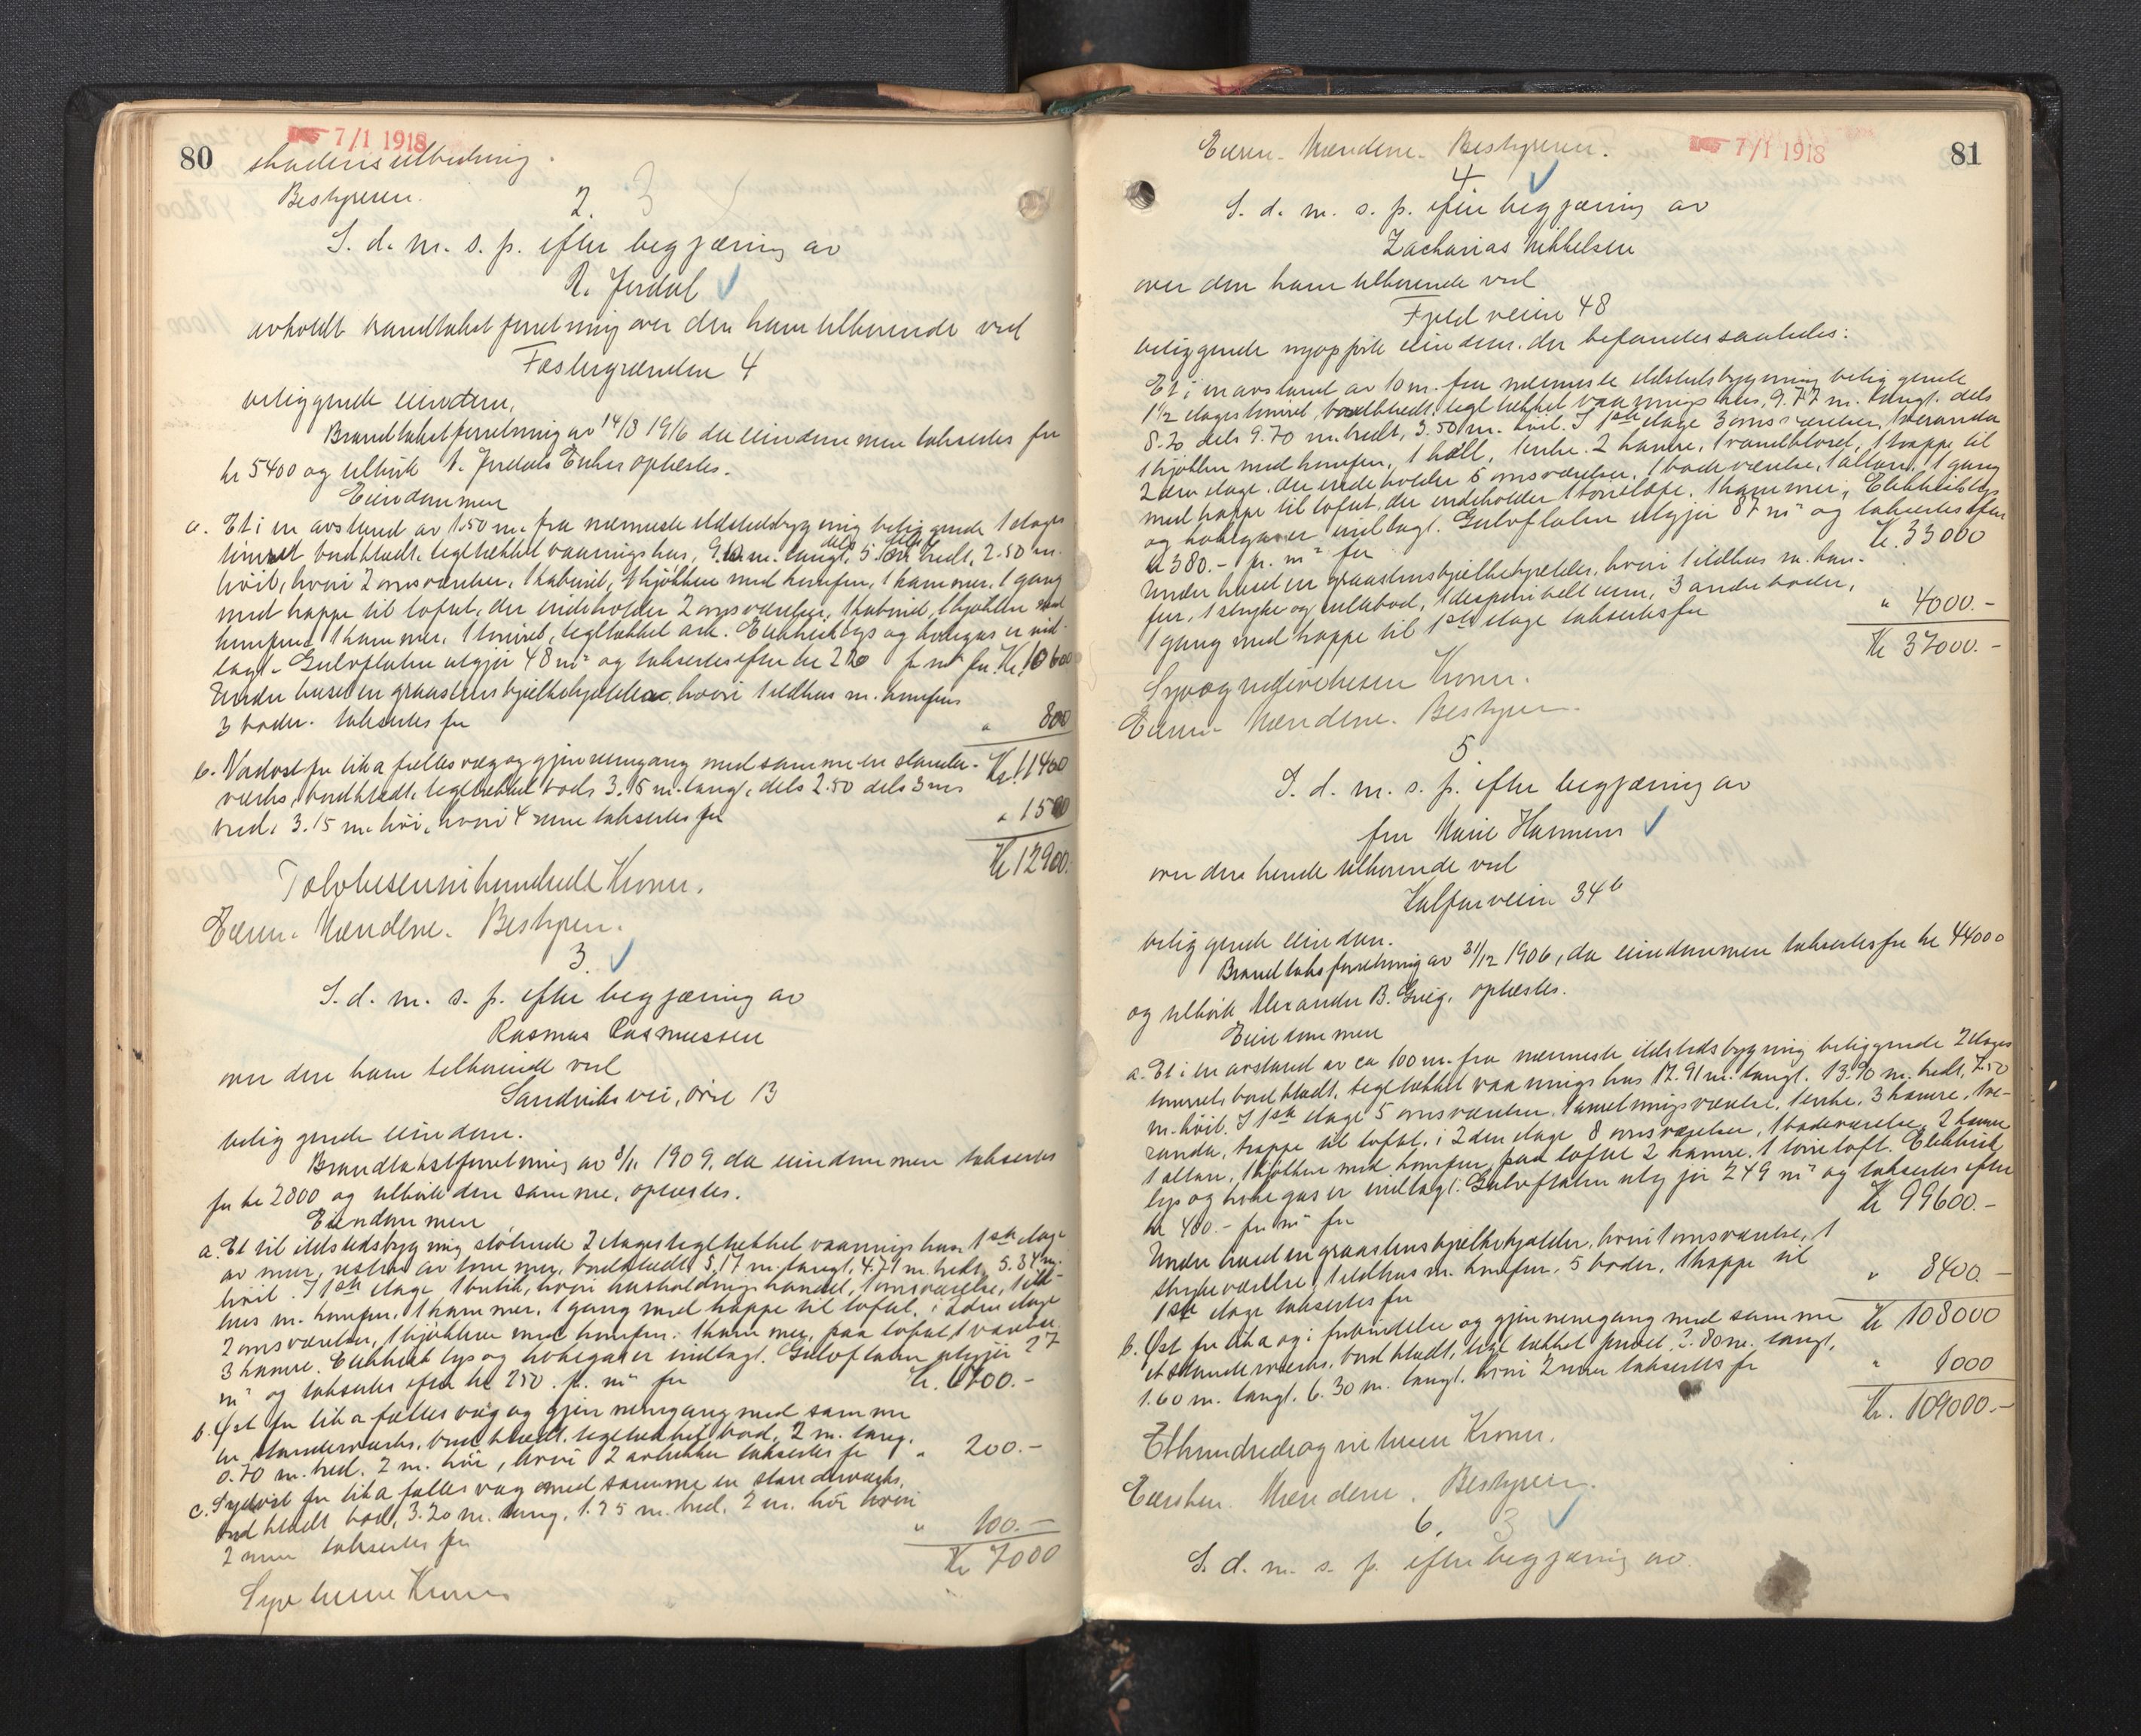 80 7/1 1918
Bestyreren.
2. 3
S. d. m. s. p. efter begjæring av
R. Jordal
avholdt brandtakstforretning over den ham tilhørende ved
Fæstergrænden 4
beliggende eiendom.
Brandtakstforretning av 14/3 1916 da eiendommen takseredes for
kr 5400 og utkvit
Eiendommen
a. Et i en avstand av 1.50 m. fra nærmeste ildstedsbygning beliggende 1 etages
tømret bordklædt, teglhækket vaaningshus, m. langt, 2.50 m.
høit, hvori 2 omsværelser, 1 kabinet, 1 kjøkken med komfur, 1 kammer, 1 gang
med trappe til loftet, der indeholder 2 omsværelser, 1 kabinet, 1 kjøkken med
komfur, 1 kammer, 1 tømret, teglhækket ark. Elektrisk lys og kokegas er ind-
lagt. Gulvflaten utgjør 48 m² og takseres efter kr 220 pr m² for Kr 10600
Under huset en graastensbjelkekjelder, hvori 1 ildhus m. komfur
3 boder. takseres for " 800
Kr 11400
b. Nordvest for lit. a fællesvæg og gjennemgang med samme en stender-
verks, bordklædt, teglhækket bod, 3.15 m. lang, dels 2.50 dels 3 m.
bred, 3.15 m. høi, hvori 4 rum takseres for " 1500
Kr 12900.
Tolvtusennihundrede Kroner.
Eieren. Mændene. Bestyreren.
3.
S. d. m. s. p. efter begjæring av
Rasmus Rasmussen
over den ham tilhørende ved
Sandviksvei, øvre 13
beliggende eiendom.
Brandtakstforretning av 1909, da eiendommen takseredes
for kr 2800 og utkvit den samme, oplæstes.
Eiendommen
a. Et til ildstedsbygning støtende 2 etages teglhækket vaaningshus 1ste etage
av mur, resten av tømmer, bordklædt 5.17 m. langt, 4.71 m. bredt, 5.34 m.
høit. I 1ste etage 1 butik, hvori husholdningshandel, 1 omsværelse, 1 ild-
hus m. komfur, 1 kammer, 1 gang med trappe til loftet, i 2den etage
2 omsværelser, 1 kjøkken med komfur, 1 kammer, paa loftet 1 værelse
3 kamre. Elektrisk lys og kokegas er indlagt. Gulvflaten utgjør 27
m² og takseres efter kr 250 pr. m² for Kr. 6700.-
b. Øst for lit a fællesvæg og gjennemgang med samme
en stenderverks, bordklædt, teglhækket bod, 2 m. lang,
0.70 m. bred, 2 m. høi, hvori 2 avlukker takseres for " 200.-
c. Sydvest for lit a fællesvæg med samme en stenderverks,
bordklædt bod, 3.20 m. lang, 1.75 m. bred, 2 m. høi hvori
2 rum takseres for " 100.-
Kr 7000
Syv tusen Kroner
7/1 1918 81
Eieren. Mændene. Bestyreren.
4
S. d. m. s. p. efter begjæring av
Zacharias Mikkelsen
over den ham tilhørende ved
Fjeldveien 48
beliggende nyopførte eiendom, der befandtes saaledes:
Et i en avstand av 10 m. fra nærmeste ildstedsbygning beliggende
1½ etages tømret, bordklædt, teglhækket vaaningshus, 9.77 m. langt, dels
8.20 dels 9.70 m. bredt, 3.50 m. høit. I 1ste etage 3 omsværelser, 1 veranda
1 kjøkken med komfur, 1 hall, 1 entre, 2 kamre, 1 vandkloset, 1 trappe til
2den etage, der indeholder 5 omsværelser, 1 badeværelse, 1 altan, 1 gang
med trappe til loftet, der indeholder 1 tørreloft, 1 kammer. Elektrisk lys
og kokegas er indlagt. Gulvflaten utgjør 87 m² og takseres efter
kr 380.- pr. m² for Kr. 33000
Under huset en graastensbjelkekjelder, hvori 1 ildhus m. kom-
fur, 1 stryke og rullebod, 1 disponibelt rum, 3 andre boder,
1 gang med trappe til 1ste etage takseres for " 4000.-
Kr 37000.-
Syvogtredivetusen Kroner.
Eieren. Mændene. Bestyreren.
5
S. d. m. s. p. efter begjæring av
fru Marie Hammer
over den hende tilhørende ved
Kalfarveien 34b
beliggende eiendom.
Brandtakstforretning av 31/12 1906, da eiendommen takseredes for kr 44000
og utkvit Alexander B. Grieg, oplæstes.
Eiendommen
a. Et i en avstand av ca 100 m. fra nærmeste ildstedsbygning beliggende 2 etages
tømret bordklædt, teglhækket vaaningshus 17.91 m. langt, 13.90 m. bredt, 7.50
m. høit. I 1ste etage 5 omsværelser, 1 anretningsværelse, 1 entre, 3 kamre, 1 ve-
randa, trappe til loftet, i 2den etage 8 omsværelser, 1 badeværelse, 2 kamre
1 altan, 1 kjøkken med komfur, paa loftet 2 kamre, 1 tørreloft. Elektrisk
lys og kokegas er indlagt. Gulvflaten utgjør 249 m² og takseres efter
kr 400.- pr m² for Kr 99600.-
Under huset en graastensbjelkekjelder, hvori 1 omsværelse, 1
strykeværelse, 1 ildhus m. komfur, 5 boder, 1 trappe til
1ste etage takseres for " 8400.-
Kr 108000
b. Øst for lit a og i forbindelse og gjennemgang med samme
et stenderverks, bordklædt, teglhækket 2.80 m. langt,
1.60 m. langt, 6.30 m. langt, hvori 2 rum takseres for " 1000
Kr. 109000.-
Ethundredeognitusen Kroner.
Eiersken. Mændene. Bestyreren.
6. 3
S. d. m. s. p. efter begjæring av.